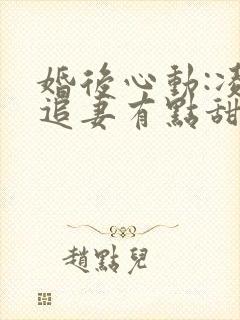 婚後心動:凌
追妻有點甜
趙點兒